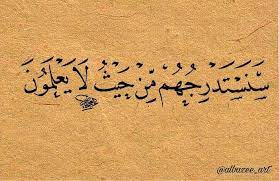 سَنَسْتَدْرِجُهُم مِّنْ حَيْثُ لَا يَعْلَمُونَ
@albazee_art